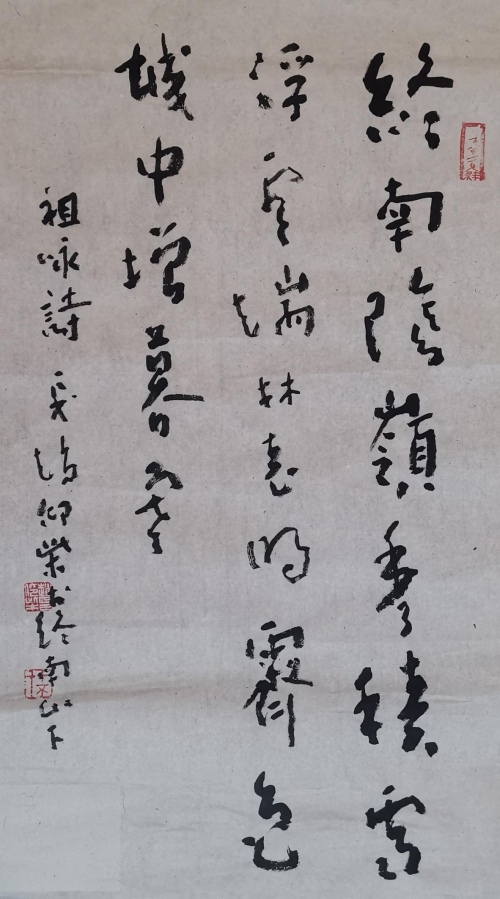 終南陰嶺秀積雪
浮雲端林表明霽色
城中增暮寒
祖咏詩 仰 終南山下